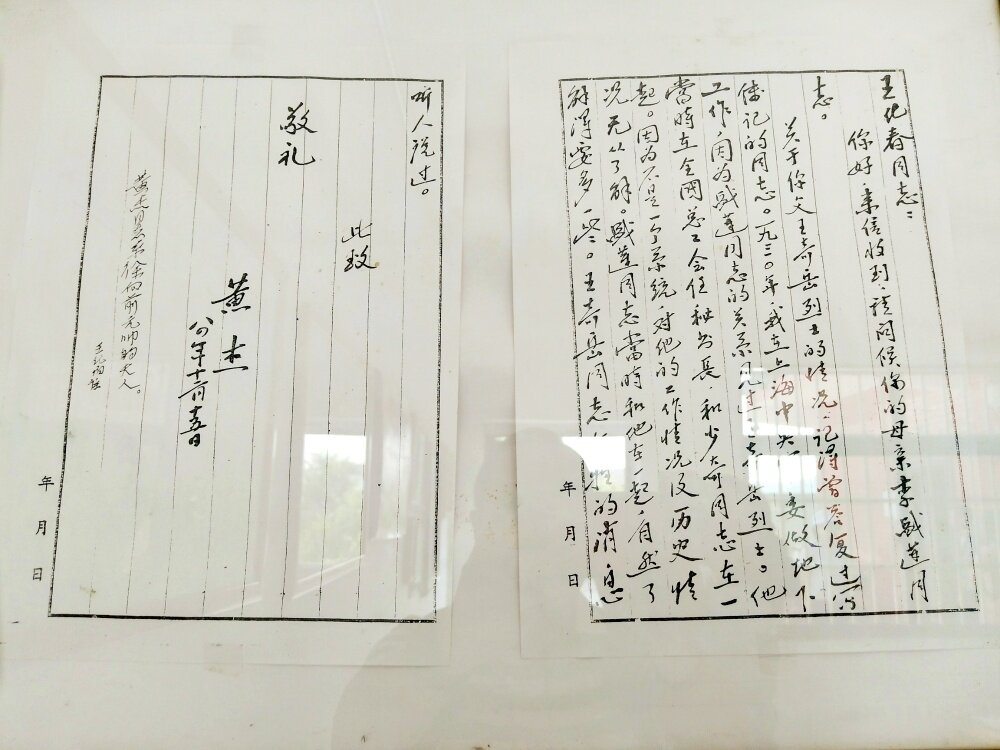 王化春同志：
你好，来信收到，请问候你的母亲李戚莲同
志。
关于你父王奇岳烈士的情况，记得曾答复过写
传记的同志。一九三〇年我在上海中央军委做地下
工作，因为戚莲同志的关系见过王奇岳烈士。他
当时在全国总工会任秘书长，和少奇同志在一
起。因为不是一个系统，对他的工作情况及历史情
况无从了解。戚莲同志当时和他在一起，自然了
解得要多一些。王奇岳同志 的消息
听人说过。
此致
敬礼
黄杰
八〇年十二月十五日
黄杰同志系徐向前元帅的夫人。
年 月 日
年 月 日